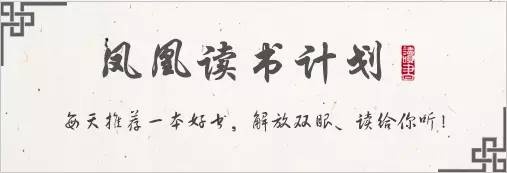 凤凰读书计划
讀書
每天推荐一本好书，解放双眼、读给你听！